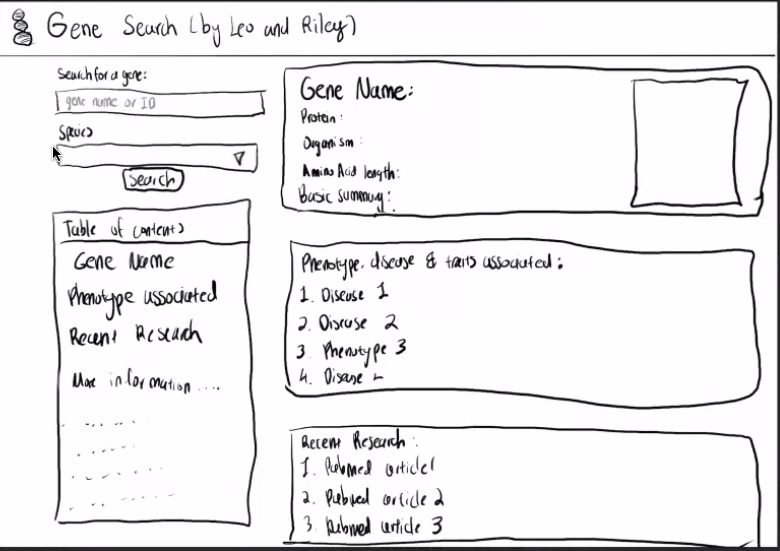 Gene Search (by Leo and Riley)
Search for a gene:
gene name or ID
Species
Search
Table of contents
Gene Name
Phenotype associated
Recent Research
More information ....
Gene Name:
Protein:
Organism:
Amino Acid length:
Basic summary:
Phenotype, disease & traits associated:
1. Disease 1
2. Disease 2
3. Phenotype 3
4. Disease
Recent Research:
1. Pubmed article 1
2. Pubmed article 2
3. Pubmed article 3